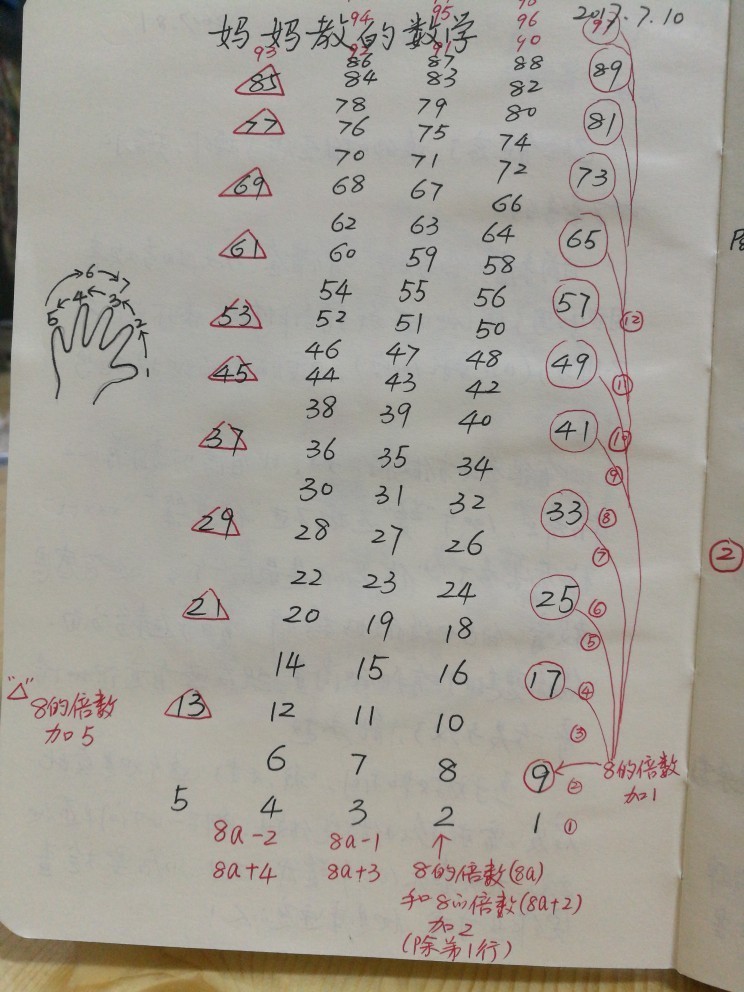 妈妈教的数学 2017.7.10
94 95 96 97
93 92 91 90
86 87 88
85 84 83 82 89
78 79 80
77 76 75 74 81
70 71 72
69 68 67 66 73
62 63 64
61 60 59 58 65
54 55 56
53 52 51 50 57
46 47 48
45 44 43 42 49
38 39 40
37 36 35 34 41
30 31 32
29 28 27 26 33
22 23 24
21 20 19 18 25
14 15 16
13 12 11 10 17
6 7 8 9
5 4 3 2 1
5 4 3 2 1
6 7
⑫
⑪
⑩
⑨
⑧
⑦
⑥
⑤
④
③
②
①
"△"
8的倍数
加5
8的倍数
加1
8a-2 8a-1 ↑
8a+4 8a+3 8的倍数(8a)
和8的倍数(8a+2)
加2
(除第1行)
②